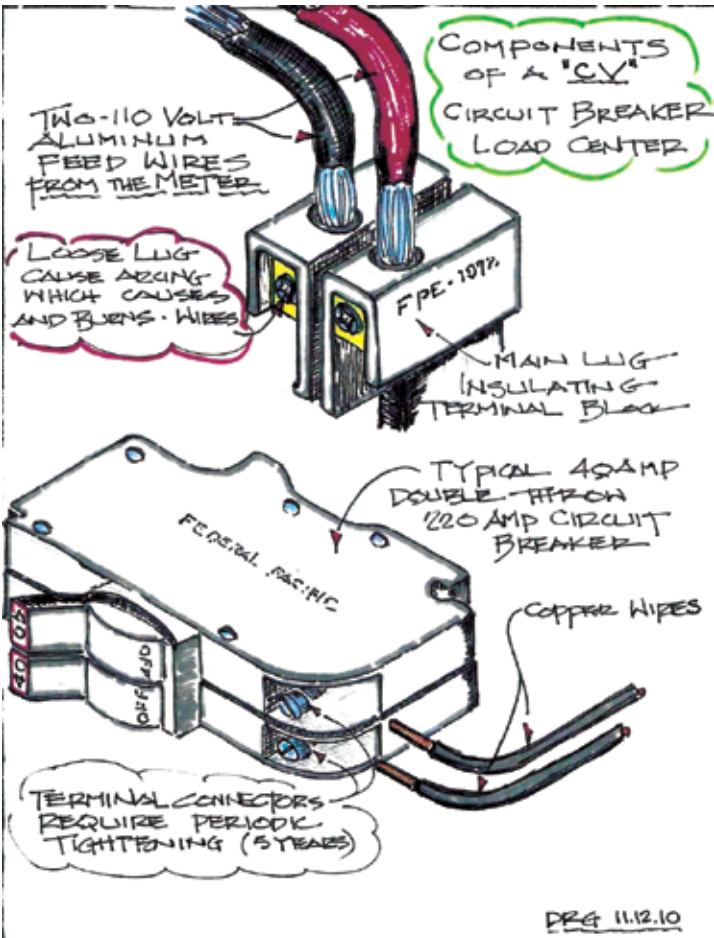 COMPONENTS
OF A "CV"
CIRCUIT BREAKER
LOAD CENTER
TWO-110 VOLT
ALUMINUM
FEED WIRES
FROM THE METER
LOOSE LUG
CAUSE ARCING
WHICH CAUSES
AND BURNS · WIRES
FPE-
MAIN LUG
INSULATING
TERMINAL BLOCK
TYPICAL 40 AMP
DOUBLE-THROW
220 AMP CIRCUIT
BREAKER
FEDERAL PACIFIC
COPPER WIRES
40
OFF
40
OFF
TERMINAL CONNECTORS
REQUIRE PERIODIC
TIGHTENING (5 YEARS)
DRG 11.12.10